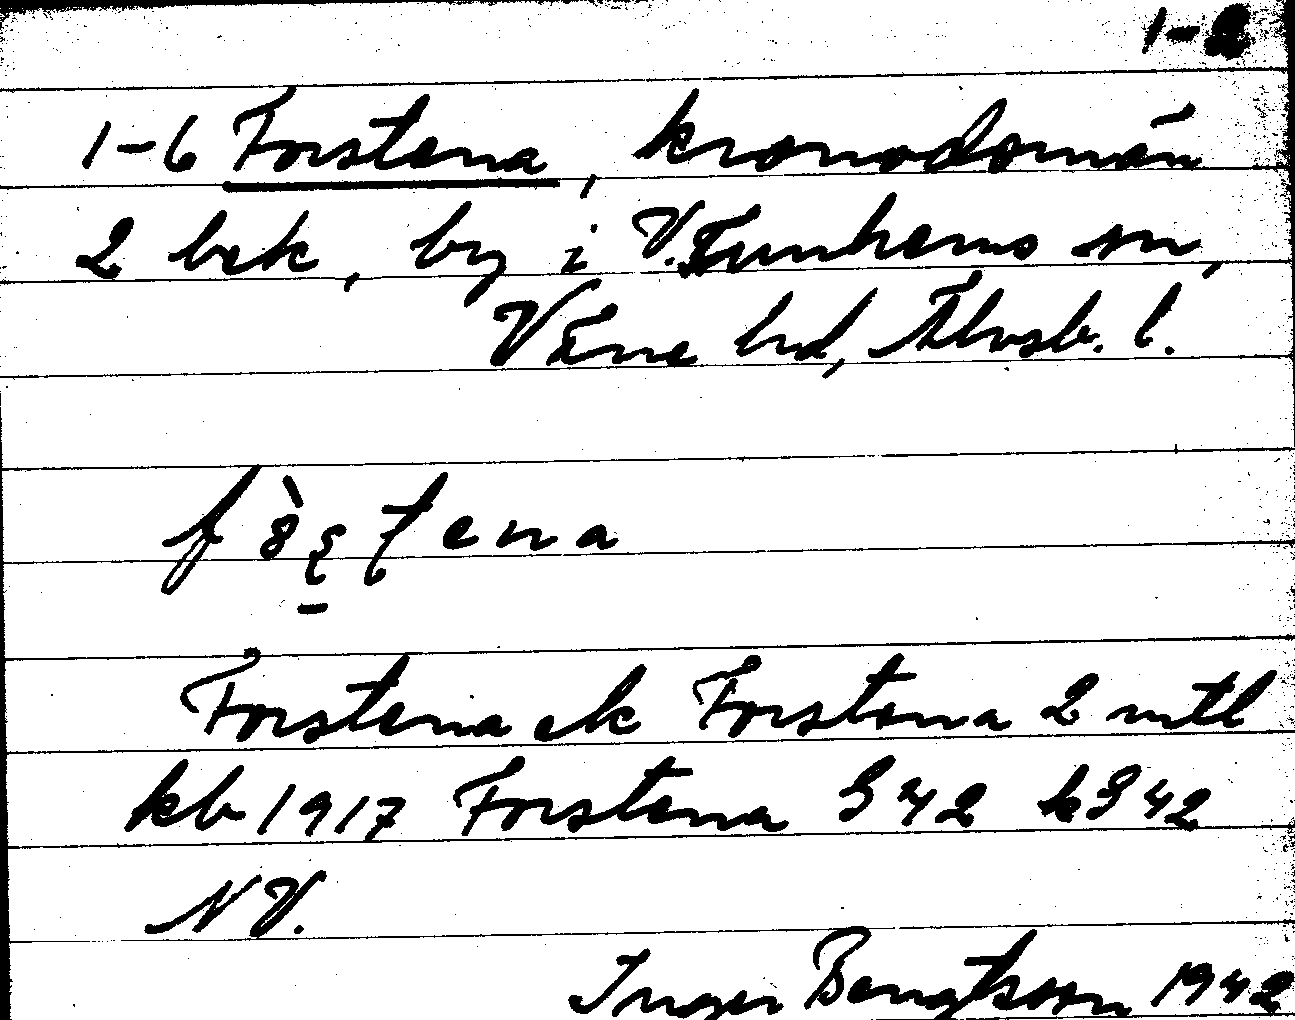 1-2
1-6 Forstena, kronodomän
2 bek, by i V. Tunhems sn,
Väne hd, Älvsb. l.
Forstena ek Forstena 2 mtl
kb 1917 Forstena G 42 kG 42
NV.
Inger Bengtsson 1942